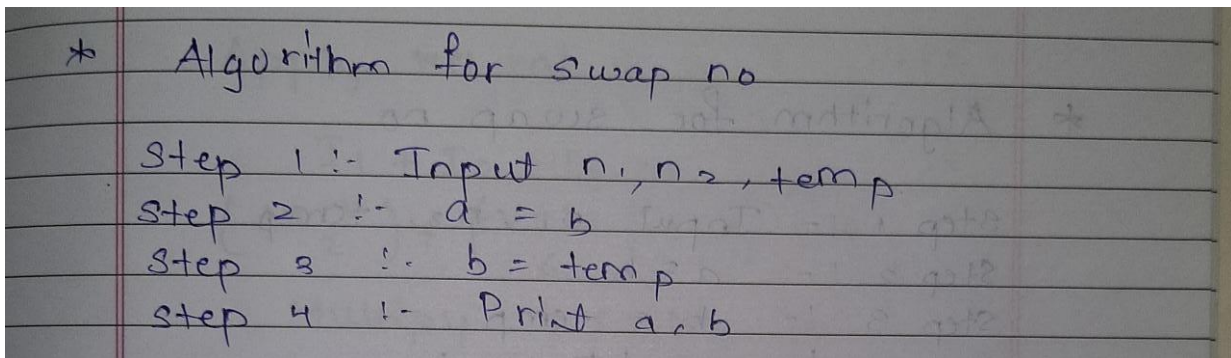 * Algorithm for swap no
Step 1 :- Input n1, n2, temp
Step 2 :- a = b
Step 3 :- b = temp
Step 4 :- Print a, b